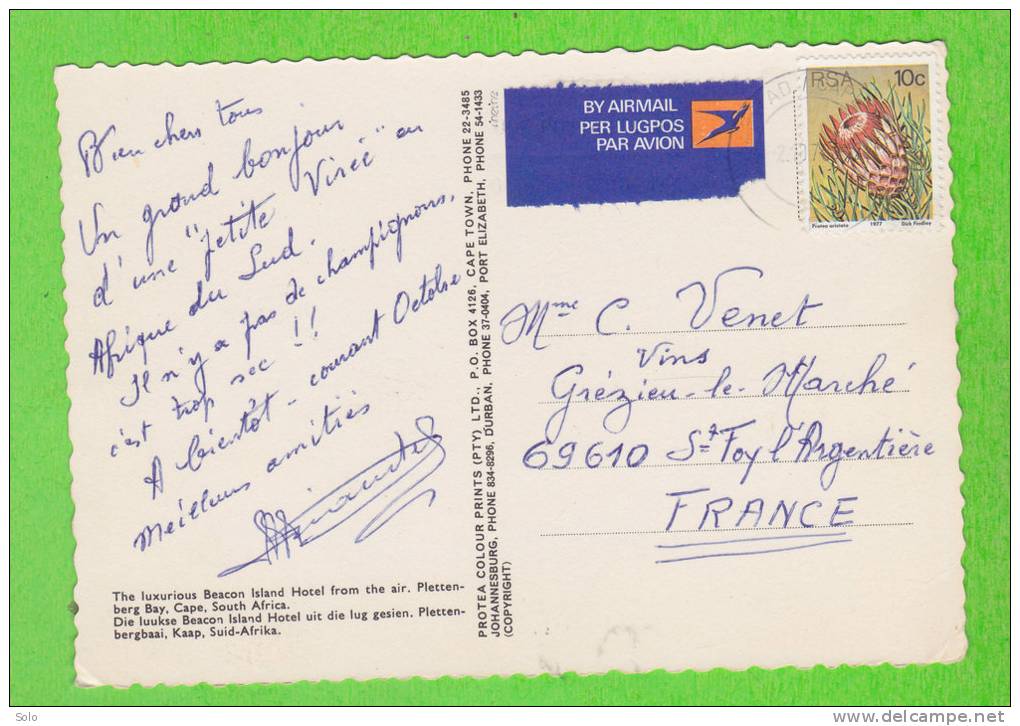 Bien chers tous
Un grand bonjour
d'une "petite Virée" en
Afrique du Sud.
Il n'y a pas de champignons,
c'est trop sec !!
A bientôt - courant Octobre
Meilleures amitiés
The luxurious Beacon Island Hotel from the air. Pletten-
berg Bay, Cape, South Africa.
Die luukse Beacon Island Hotel uit die lug gesien. Pletten-
bergbaai, Kaap, Suid-Afrika.
PROTEA COLOUR PRINTS (PTY) LTD., P.O. BOX 4126, CAPE TOWN, PHONE 22-3485
JOHANNESBURG, PHONE 834-8296, DURBAN, PHONE 37-0404, PORT ELIZABETH, PHONE 54-1433
(COPYRIGHT)
BY AIRMAIL
PER LUGPOS
PAR AVION
RSA 10c
Protea aristata 1977 Dick Findlay
Mme C. Venet
Vins
Grézieu-le-Marché
69610 Ste Foy l'Argentière
FRANCE
Solo
http://www.delcampe.net